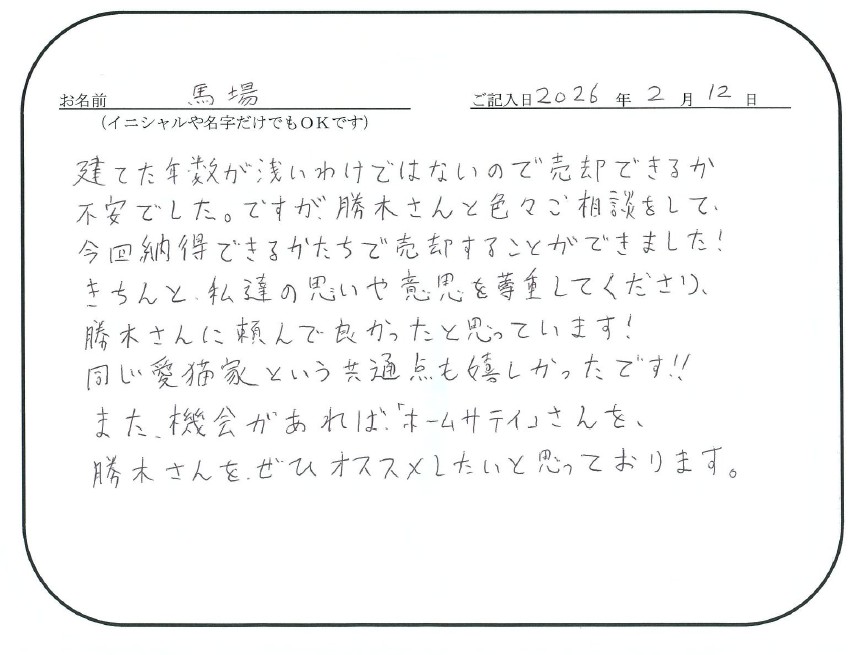 お名前 馬場 ご記入日2026年2月12日
(イニシャルや名字だけでもOKです)
建てた年数が浅いわけではないので売却できるか
不安でした。ですが、勝木さんと色々ご相談をして、
今回納得できるかたちで売却することができました!
きちんと、私達の思いや意思を尊重してくださり、
勝木さんに頼んで良かったと思っています!
同じ愛猫家という共通点も嬉しかったです!!
また、機会があれば、「ホームサティ」さんを、
勝木さんを、ぜひオススメしたいと思っております。